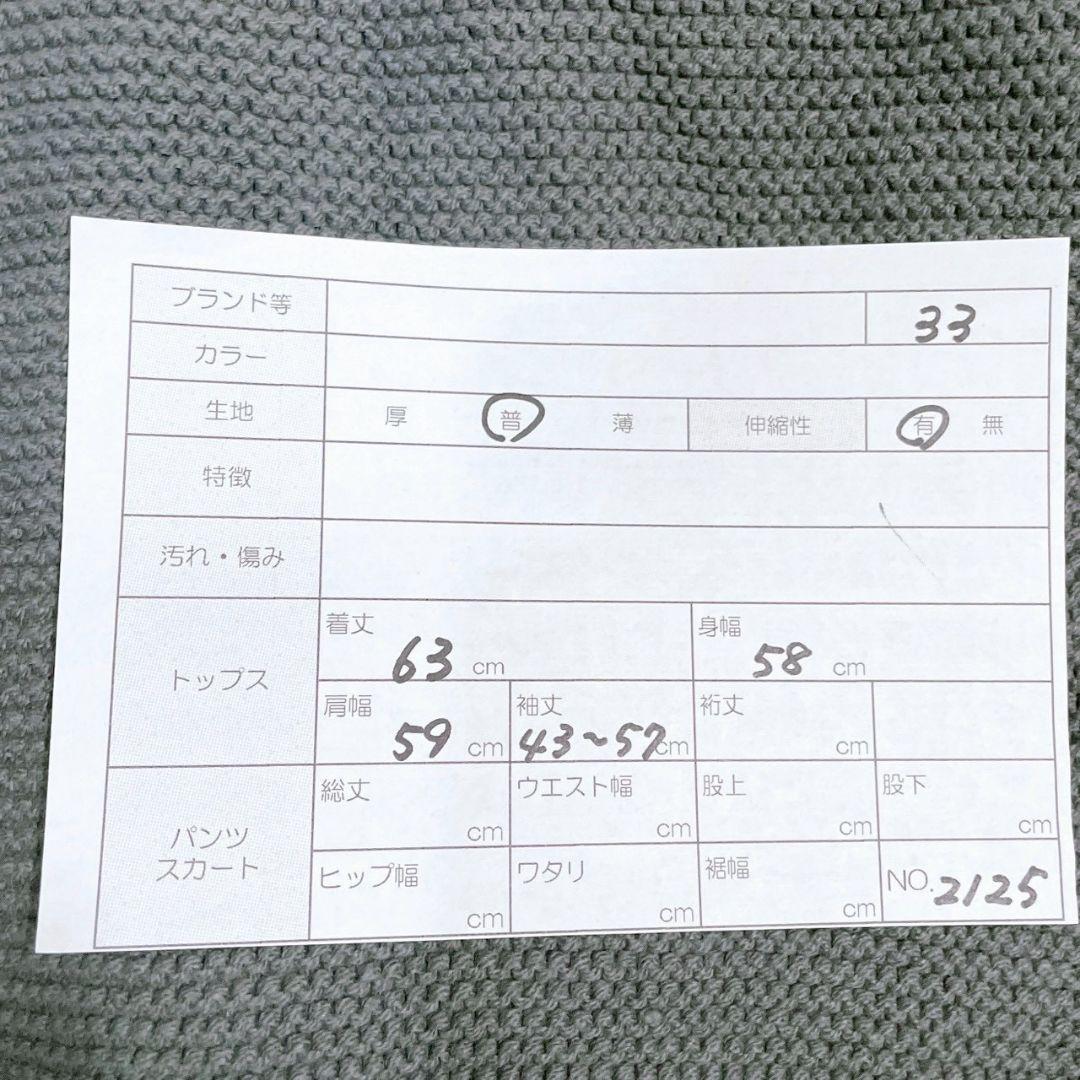 ブランド等 33
カラー
生地 厚 普 薄 伸縮性 有 無
特徴
汚れ・傷み
トップス
着丈 63 cm 身幅 58 cm
肩幅 59 cm 袖丈 43~57cm 裄丈 cm
パンツ
スカート
総丈 cm ウエスト幅 cm 股上 cm 股下 cm
ヒップ幅 cm ワタリ cm 裾幅 cm NO.2125